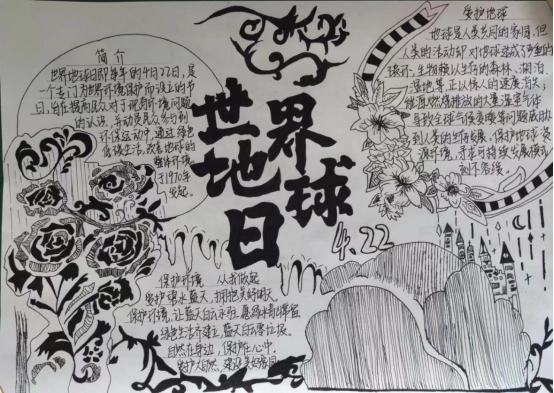 世界
地球
日
4.22
简介
世界地球日即每年的4月22日,是
一个专门为世界环境保护而设立的节
日,旨在提高民众对于现有环境问题
的认识,并动员民众参与到
环保运动中,通过绿色
低碳生活,改善地球的
整体环境
于1970年
发起。
爱护地球
地球是人类共同的家园,但
人类的活动却对地球造成了严重的
破坏,生物赖以生存的森林、湖泊、
湿地等,正以惊人的速度消失;
能源燃烧排放的大量温室气体
导致全球气候变暖等问题威胁
到人类的生存发展,保护地球资
源环境,寻求可持续发展模式
刻不容缓。
保护环境 从我做起
爱护碧水蓝天,拥抱美好明天
保护环境,让蓝天白云永驻
绿色生活齐建立,蓝天白云
自然在身边,保护在心中。
爱护大自然,建设美好家园